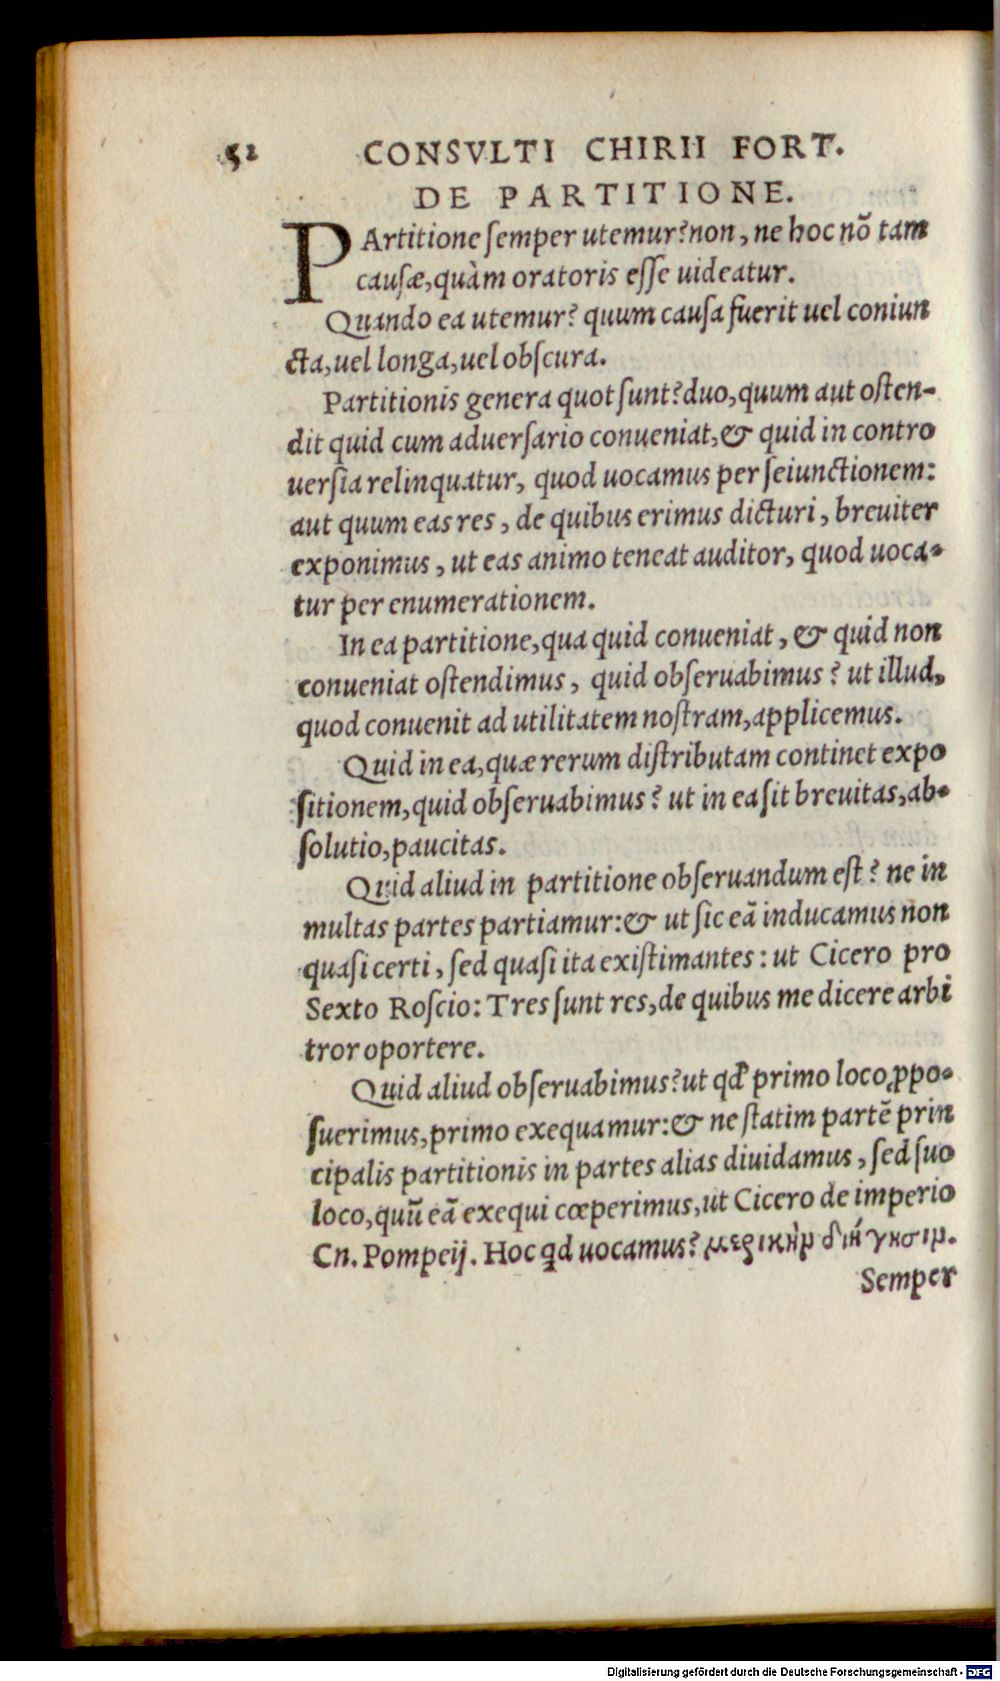 52 CONSVLTI CHIRII FORT.
DE PARTITIONE.
PArtitione semper utemur? non, ne hoc nõ tam
causæ, quàm oratoris esse uideatur.
Quando ea utemur? quum causa fuerit uel coniun
cta, uel longa, uel obscura.
Partitionis genera quot sunt? duo, quum aut osten-
dit quid cum aduersario conueniat, & quid in contro
uersia relinquatur, quod uocamus per seiunctionem:
aut quum eas res, de quibus erimus dicturi, breuiter
exponimus, ut eas animo teneat auditor, quod uoca-
tur per enumerationem.
In ea partitione, qua quid conueniat, & quid non
conueniat ostendimus, quid obseruabimus? ut illud,
quod conuenit ad utilitatem nostram, applicemus.
Quid in ea, quæ rerum distributam continet expo
sitionem, quid obseruabimus? ut in ea sit breuitas, ab-
solutio, paucitas.
Quid aliud in partitione obseruandum est? ne in
multas partes partiamur: & ut sic eã inducamus non
quasi certi, sed quasi ita existimantes: ut Cicero pro
Sexto Roscio: Tres sunt res, de quibus me dicere arbi
tror oportere.
Quid aliud obseruabimus? ut qđ primo loco ꝓpo-
suerimus, primo exequamur: & ne statim partẽ prin
cipalis partitionis in partes alias diuidamus, sed suo
loco, quũ eã exequi cœperimus, ut Cicero de imperio
Cn. Pompeij. Hoc qd uocamus? μερικὴν διήγησιν.
Semper
Digitalisierung gefördert durch die Deutsche Forschungsgemeinschaft - DFG